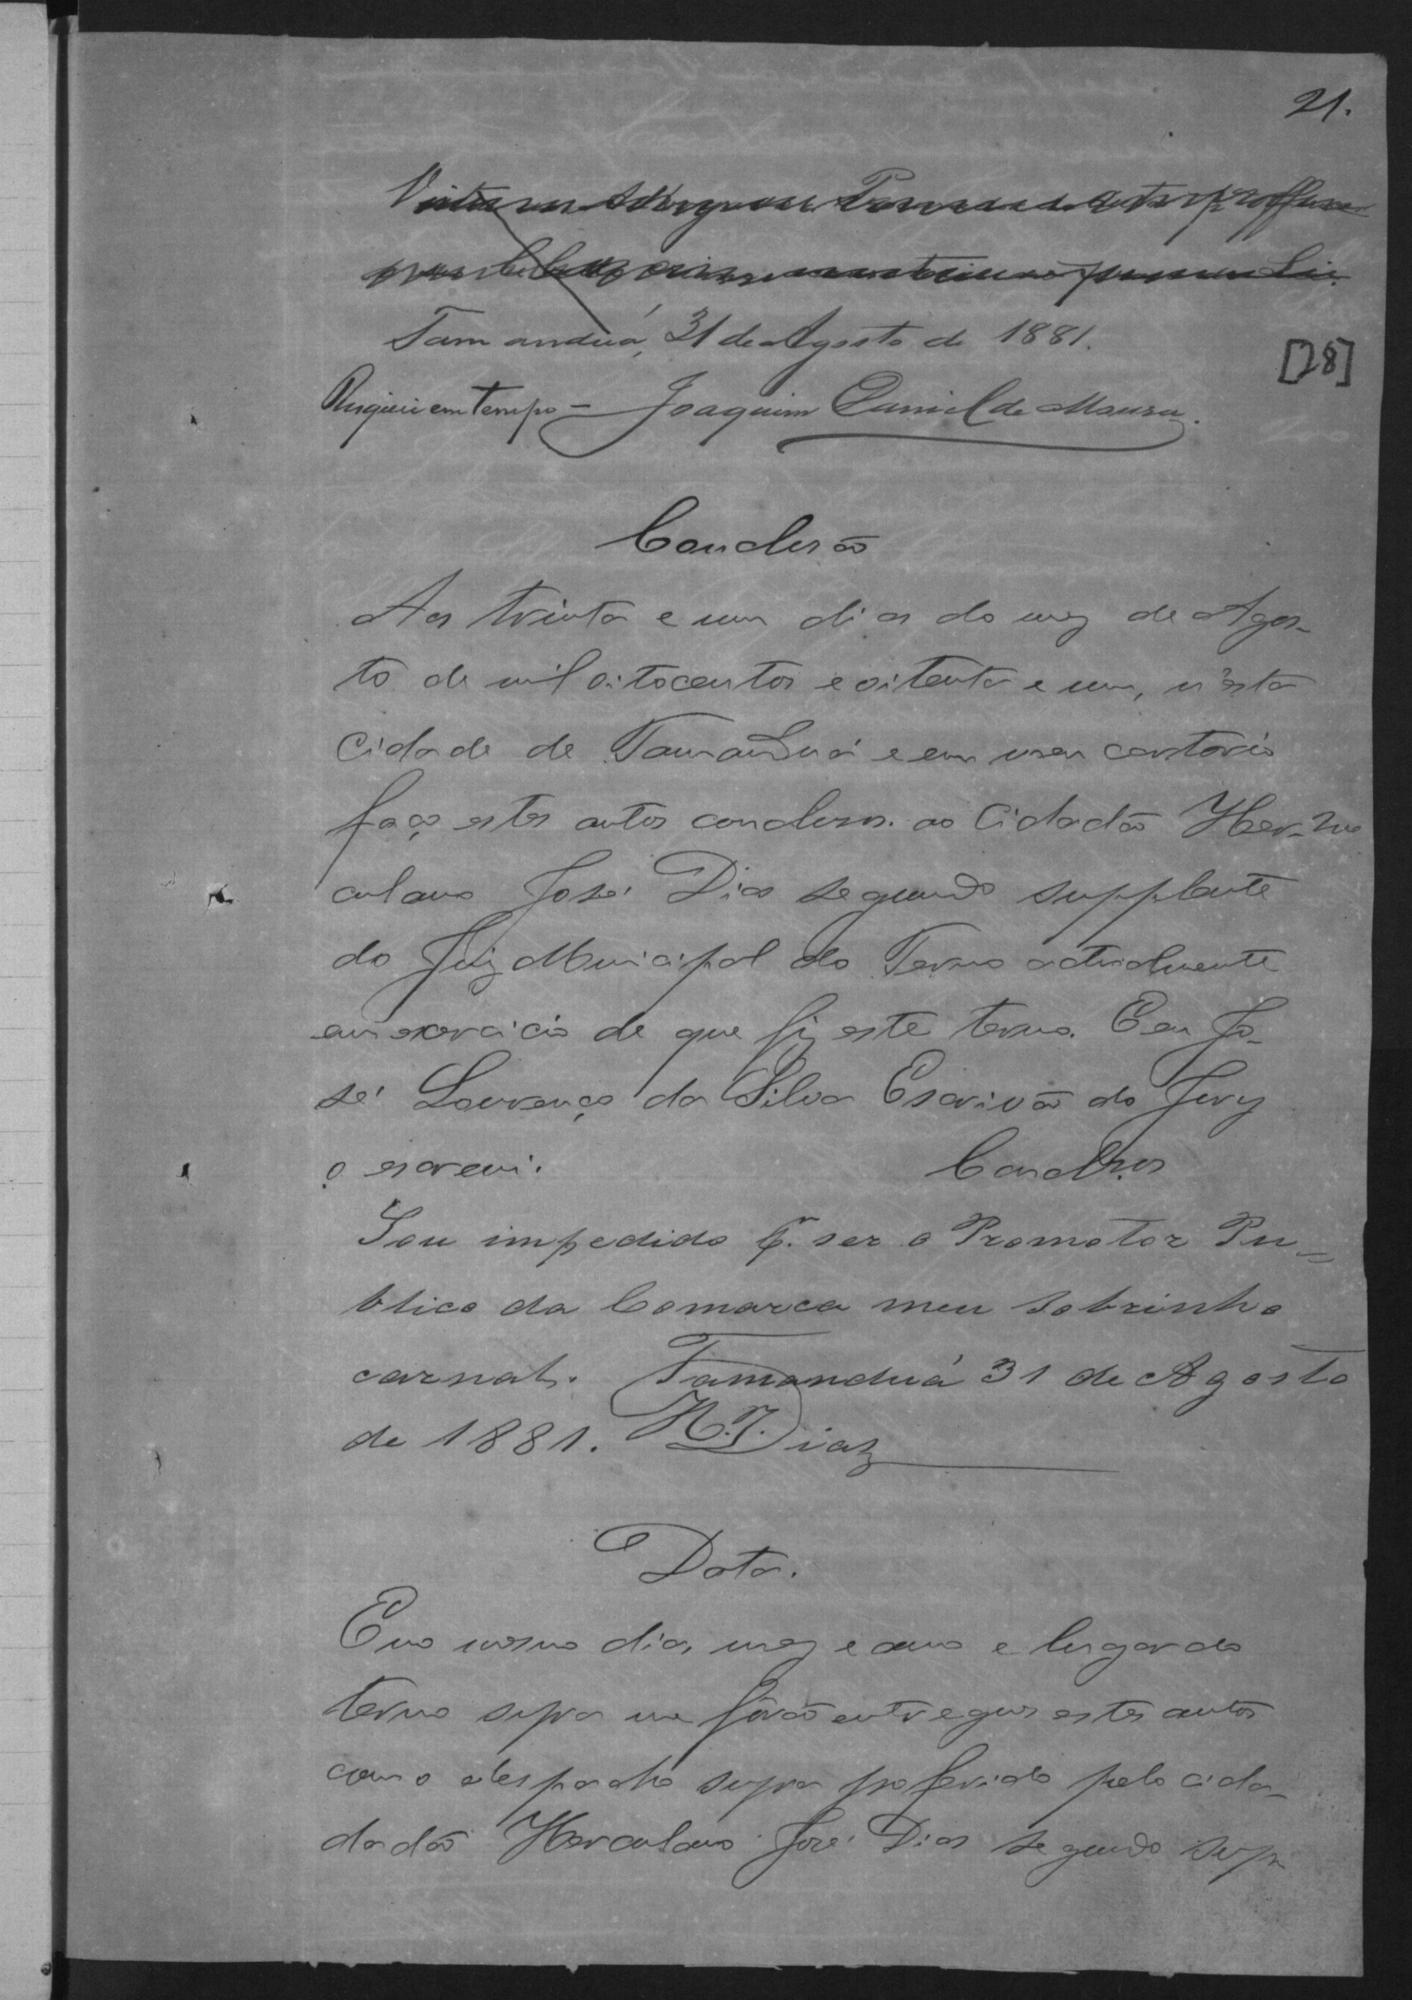 21.
Tamanduá, 31 de Agosto de 1881.
[28]
Requeri em tempo – Joaquim Daniel de Moura.
Conclusão
Aos trinta e um dias do mez de Agos-
to de mil oitocentos e oitenta e um, n'esta
Cidade de Tamanduá e em meu cartorio
faço estes autos conclusos ao Cidadão Her-
culano José Dias segundo supplente
do Juiz Municipal do Termo actualmente
em exercicio de que fiz este termo. E eu Jo-
sé Lourenço da Silva Escrivão do Jury
o escrevi. Conclusos
Sou impedido pr. ser o Promotor Pu=
blico da Comarca meu sobrinho
carnal. Tamanduá 31 de Agosto
de 1881. H. J. Diaz
Data.
E no mesmo dia, mez e anno e lugar do
termo supra me forão entregues estes autos
com o despacho supra proferido pelo cida-
dadão Herculano José Dias segundo sup-